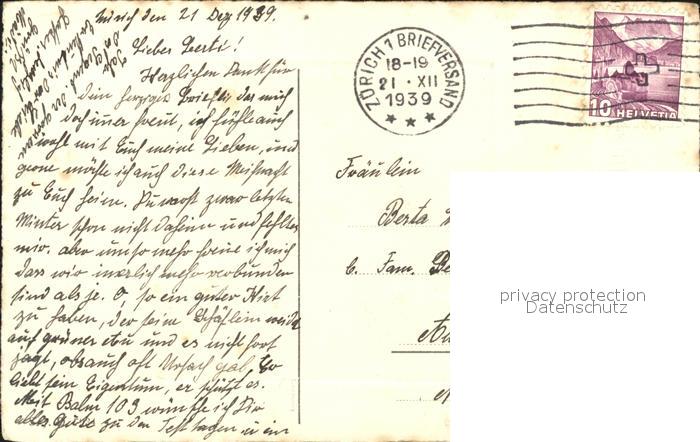 Zürich den 21 Dez 1939.
Liebes Berti!
Herzlichen Dank für
Dein herziges Brieflis das mich
doch imer freut, ich fühle auch
wohl mit Euch meine Lieben, und
gerne möchte ich auch diese Weihnacht
zu Euch heim. Du warst zwar letzten
Winter schon nicht daheim und fehltest
mir. aber umso mehr freue ich mich
dass wir innerlich mehr verbunden
sind als je. O, so ein guter Hirt
zu haben, der seine Schäflein weidet
auf grüner Au und es nicht fort
jagt, obs auch oft Ursach gab, Er
liebt sein Eigentum, er schützt es.
Mit Psalm 103 wünsche ich Dir
alles Gute zu den Festtagen u ein
ZÜRICH 1 BRIEFVERSAND
18-19
21 · XII
1939
10 HELVETIA
Fräulein
Berta
b. Fam. Be
privacy protection
Datenschutz